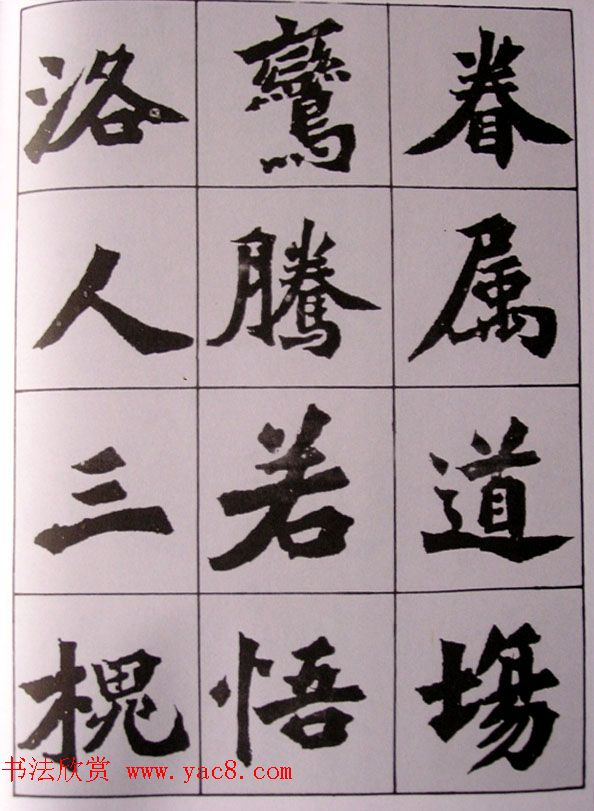 眷属道場
鸞騰若悟
洛人三槐
书法欣赏 www.yac8.com